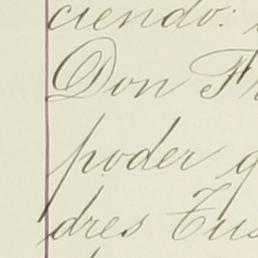 ciendo:
Don F
poder q
dres Tus